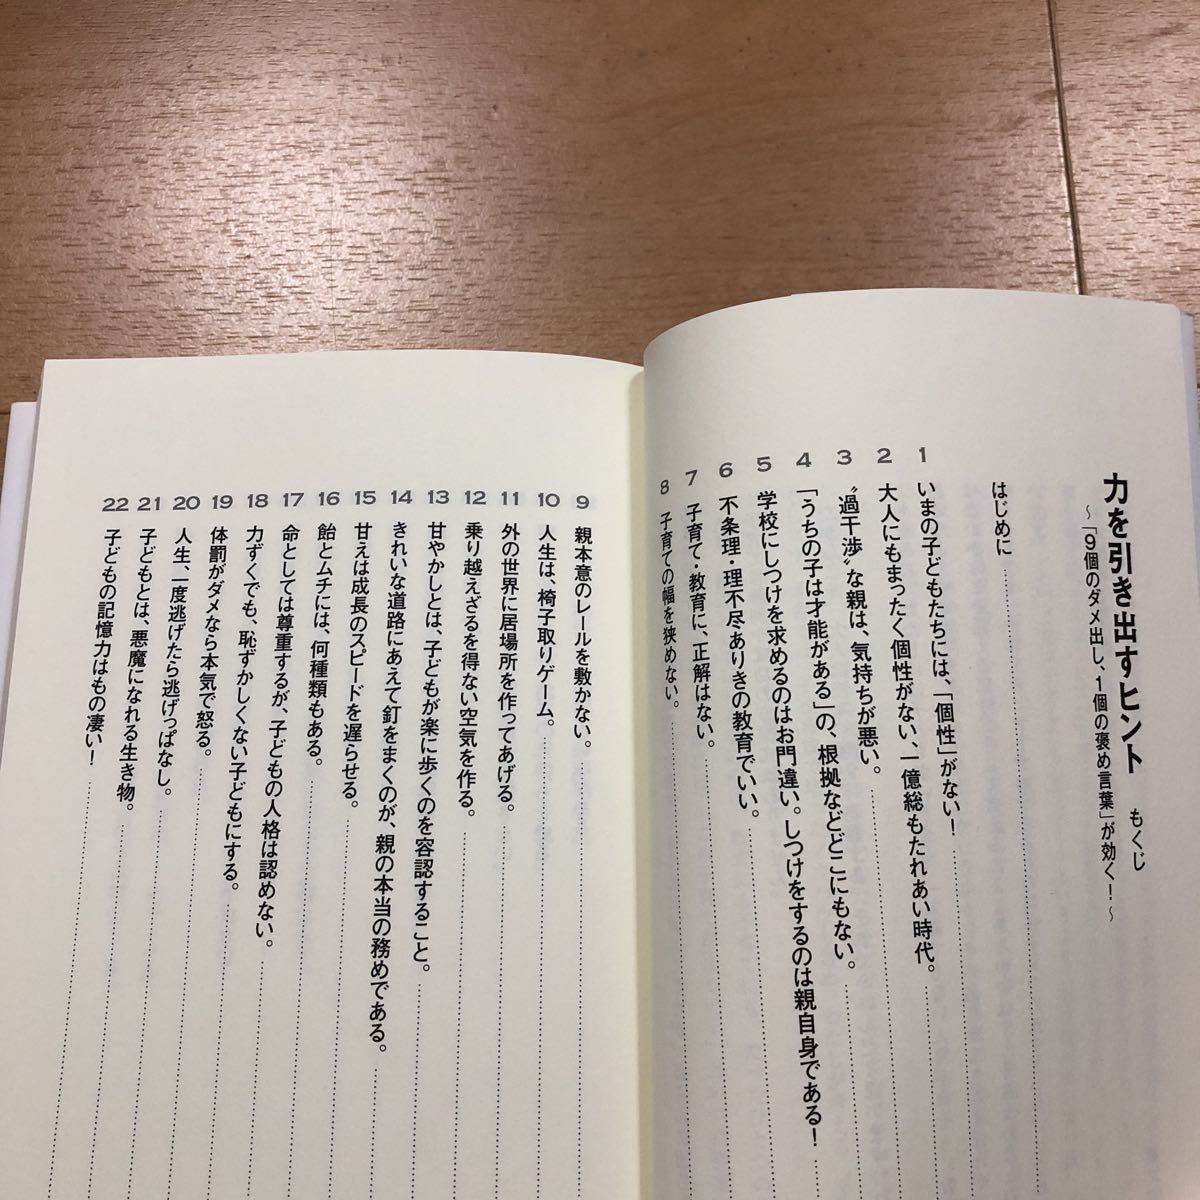 力を引き出すヒント もくじ
～「9個のダメ出し、1個の褒め言葉」が効く！～
はじめに
1 いまの子どもたちには、「個性」がない！
2 大人にもまったく個性がない、一億総もたれあい時代。
3 〝過干渉〟な親は、気持ちが悪い。
4 「うちの子は才能がある」の、根拠などどこにもない。
5 学校にしつけを求めるのはお門違い。しつけをするのは親自身である！
6 不条理・理不尽ありきの教育でいい。
7 子育て・教育に、正解はない。
8 子育ての幅を狭めない。
9 親本意のレールを敷かない。
10 人生は、椅子取りゲーム。
11 外の世界に居場所を作ってあげる。
12 乗り越えざるを得ない空気を作る。
13 甘やかしとは、子どもが楽に歩くのを容認すること。
14 きれいな道路にあえて釘をまくのが、親の本当の務めである。
15 甘えは成長のスピードを遅らせる。
16 飴とムチには、何種類もある。
17 命としては尊重するが、子どもの人格は認めない。
18 力ずくでも、恥ずかしくない子どもにする。
19 体罰がダメなら本気で怒る。
20 人生、一度逃げたら逃げっぱなし。
21 子どもとは、悪魔になれる生き物。
22 子どもの記憶力はもの凄い！